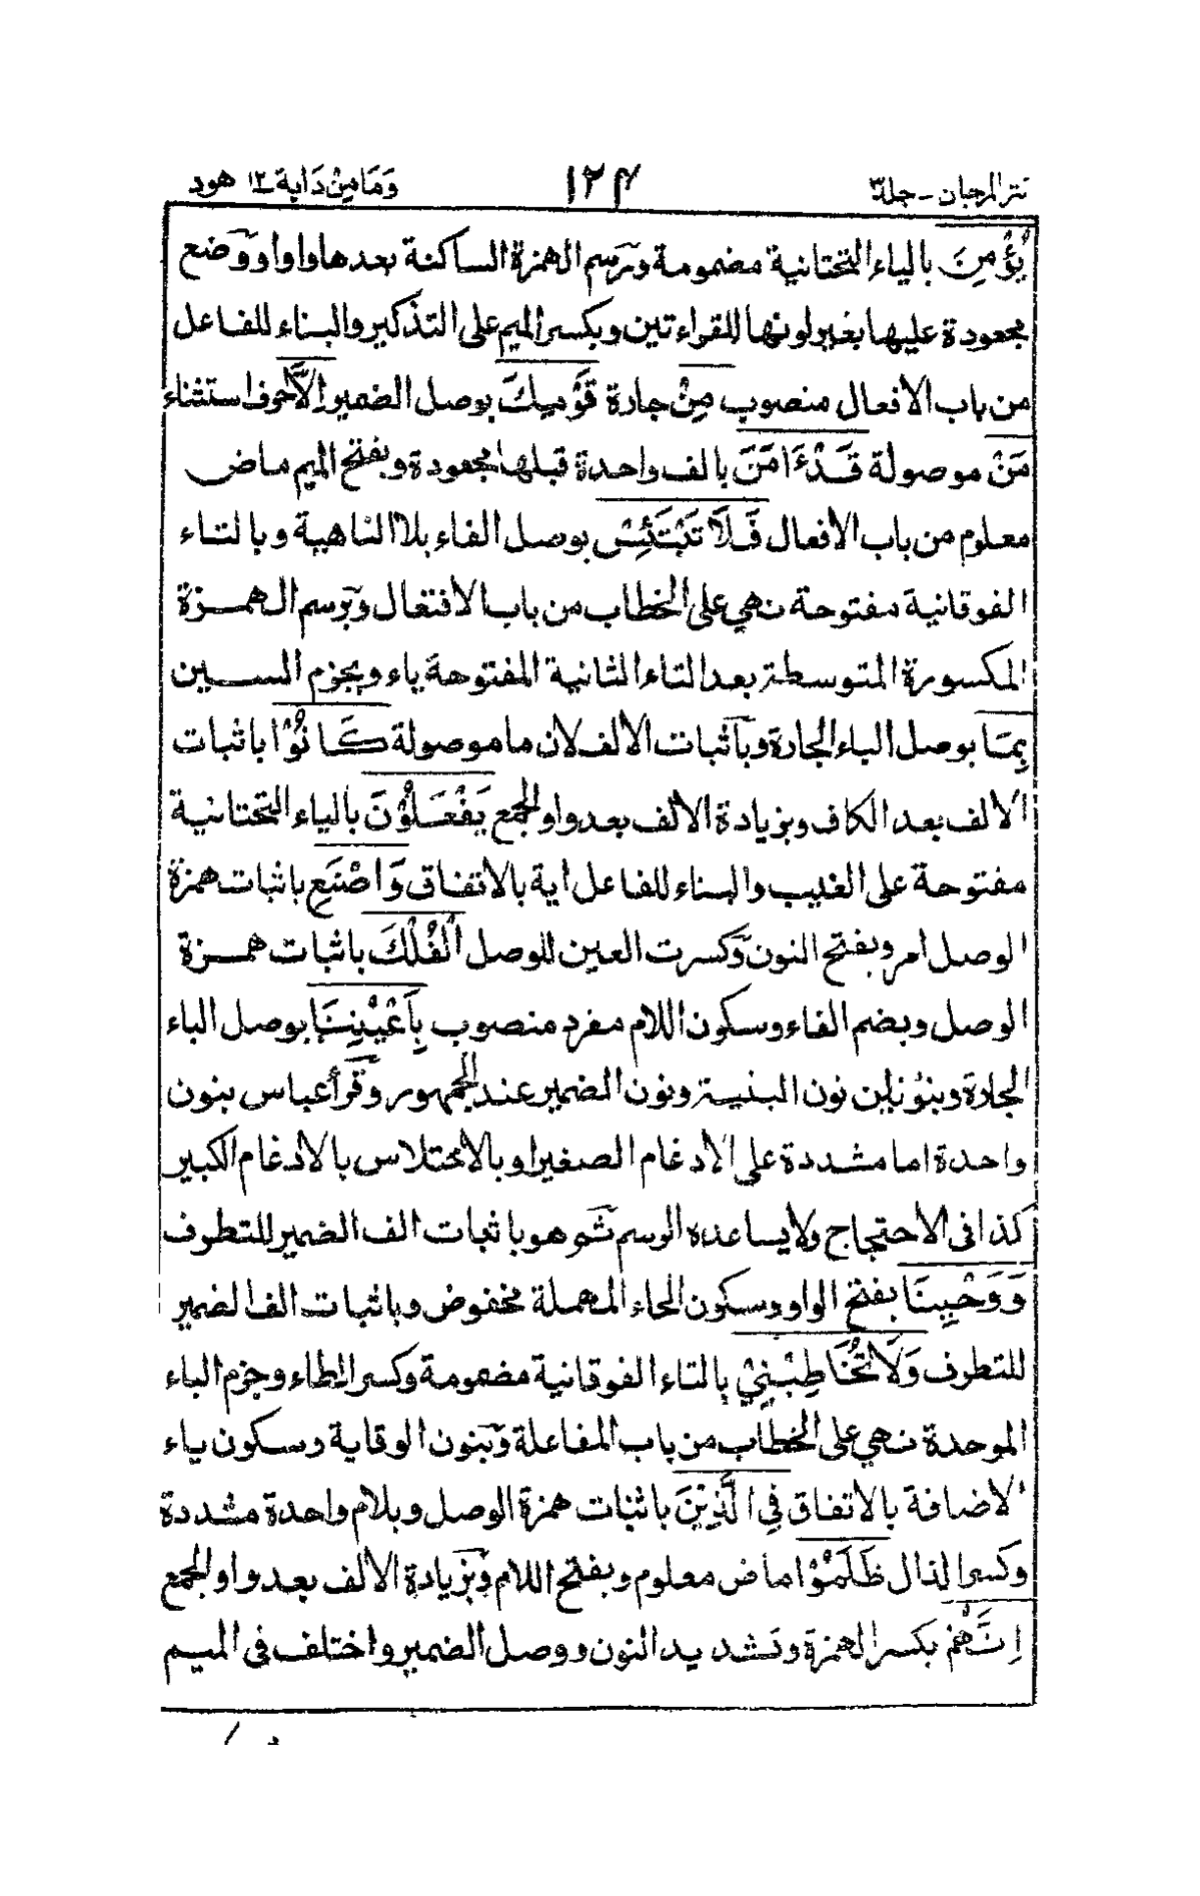 نثر المرجان ـ جلد ٣
١٢٤
وَمَا مِنْ دَابة ١٢ هود
يُؤْمِنَ بالياء التحتانية مضمومة وبرسم الهمزة الساكنة بعدها واوا ووضع
مجعودة عليها بغير لونها للقراءتين وبكسر الميم على التذكير والبناء للفاعل
من باب الافعال منصوب مِنْ جارة قَوْمِكَ بوصل الضمير اِلَّا حرف استثناء
مَنْ موصولة قَدْ ءَامَنَ بالف واحدة قبلها مجعودة وبفتح الميم ماض
معلوم من باب الافعال فَلَا تَبْتَئِسْ بوصل الفاء بلا الناهية وبالتاء
الفوقانية مفتوحة نهي على الخطاب من باب الافتعال وبرسم الهمزة
المكسورة المتوسطة بعد التاء الثانية المفتوحة ياء وبجزم السين
بِمَا بوصل الباء الجارة وباثبات الالف لان ما موصولة كَانُوْا باثبات
الالف بعد الكاف وبزيادة الالف بعد واو الجمع يَفْعَلُوْنَ بالياء التحتانية
مفتوحة على الغيب والبناء للفاعل اية بالاتفاق وَاصْنَعِ باثبات همزة
الوصل امر وبفتح النون وكسرت العين للوصل الْفُلْكَ باثبات همزة
الوصل وبضم الفاء وسكون اللام مفرد منصوب بِاَعْيُنِنَا بوصل الباء
الجارة وبنونين نون البنية ونون الضمير عند الجمهور وقرأ عباس بنون
واحدة اما مشددة على الادغام الصغير او بالاختلاس بالادغام الكبير
كذا فى الاحتجاج ولا يساعده الرسم ثم هو باثبات الف الضمير للتطرف
وَوَحْيِنَا بفتح الواو وسكون الحاء المهملة مخفوض وباثبات الف الضمير
للتطرف وَلَا تُخَاطِبْنِيْ بالتاء الفوقانية مضمومة وكسر الطاء وجزم الباء
الموحدة نهي على الخطاب من باب المفاعلة وبنون الوقاية وسكون ياء
الاضافة بالاتفاق فِي الَّذِيْنَ باثبات همزة الوصل وبلام واحدة مشددة
وكسر الذال ظَلَمُوْا ماض معلوم وبفتح اللام وبزيادة الالف بعد واو الجمع
اِنَّهُمْ بكسر الهمزة وتشديد النون ووصل الضمير واختلف فى الميم